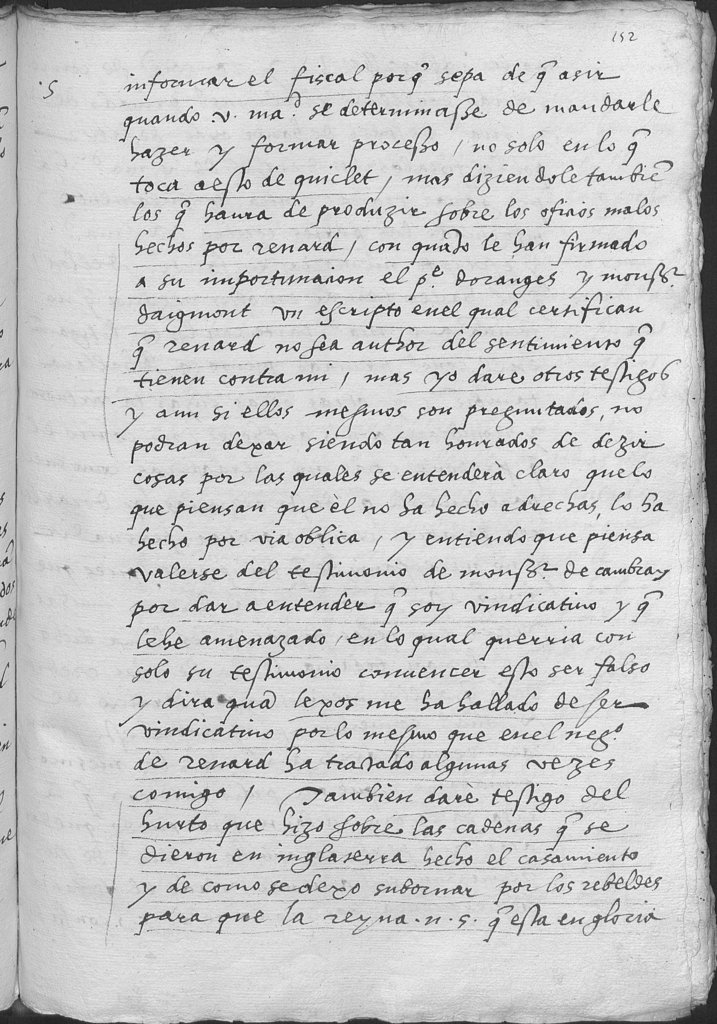 152
5
informar el fiscal porq̃ sepa de q̃ asir
quando v. ma.d se determinasse de mandarle
hazer y formar processo / no solo en lo q̃
toca a esto de quiclet / mas diziendole tambiẽ
los q̃ haura de produzir sobre los oficios malos
hechos por renard / con quãto le han firmado
a su importunacion el p.e doranges y mons.r
daigmont vn escripto enel qual certifican
q̃ renard no sea author del sentimiento q̃
tienen contra mi / mas yo dare otros testigos
y aun si ellos mesmos son preguntados, no
podran dexar siendo tan honrados de dezir
cosas por las quales se entenderà claro que lo
que piensan que èl no ha hecho adrechas, lo ha
hecho por via oblica / y entiendo que piensa
valerse del testimonio de mons.r de cambray
por dar a entender q̃ soy vindicatiuo y q̃
le he amenazado / en lo qual querria con
solo su testimonio conuencer esto ser falso
y dira quã lexos me ha hallado de ser
vindicatiuo por lo mesmo que enel neg.o
de renard ha tratado algunas vezes
comigo / Tambien darè testigo del
hurto que hizo sobre las cadenas q̃ se
dieron en inglaterra hecho el casamiento
y de como se dexo subornar por los rebeldes
para que la reyna . n . s . q̃ esta en gloria